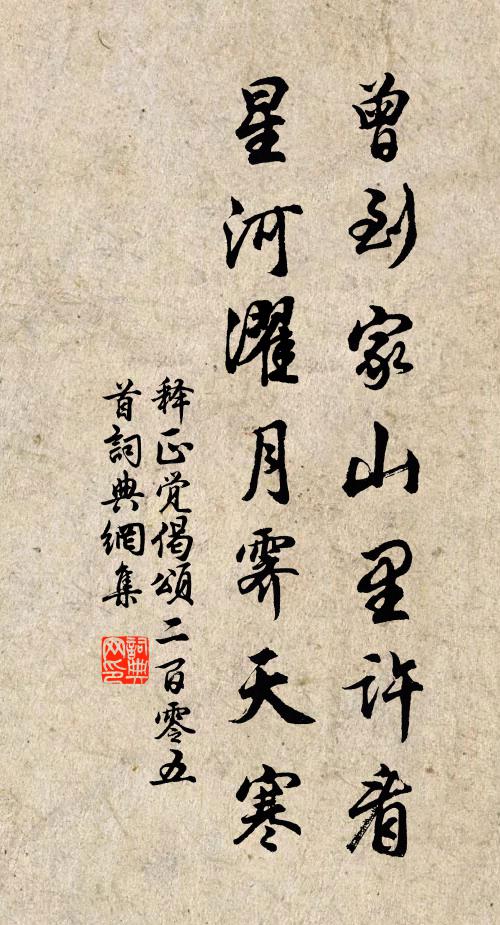 曾到家山里許看
星河濯月霽天寒
释正觉偈頌二百零五
首詞典網集
詞典
网印